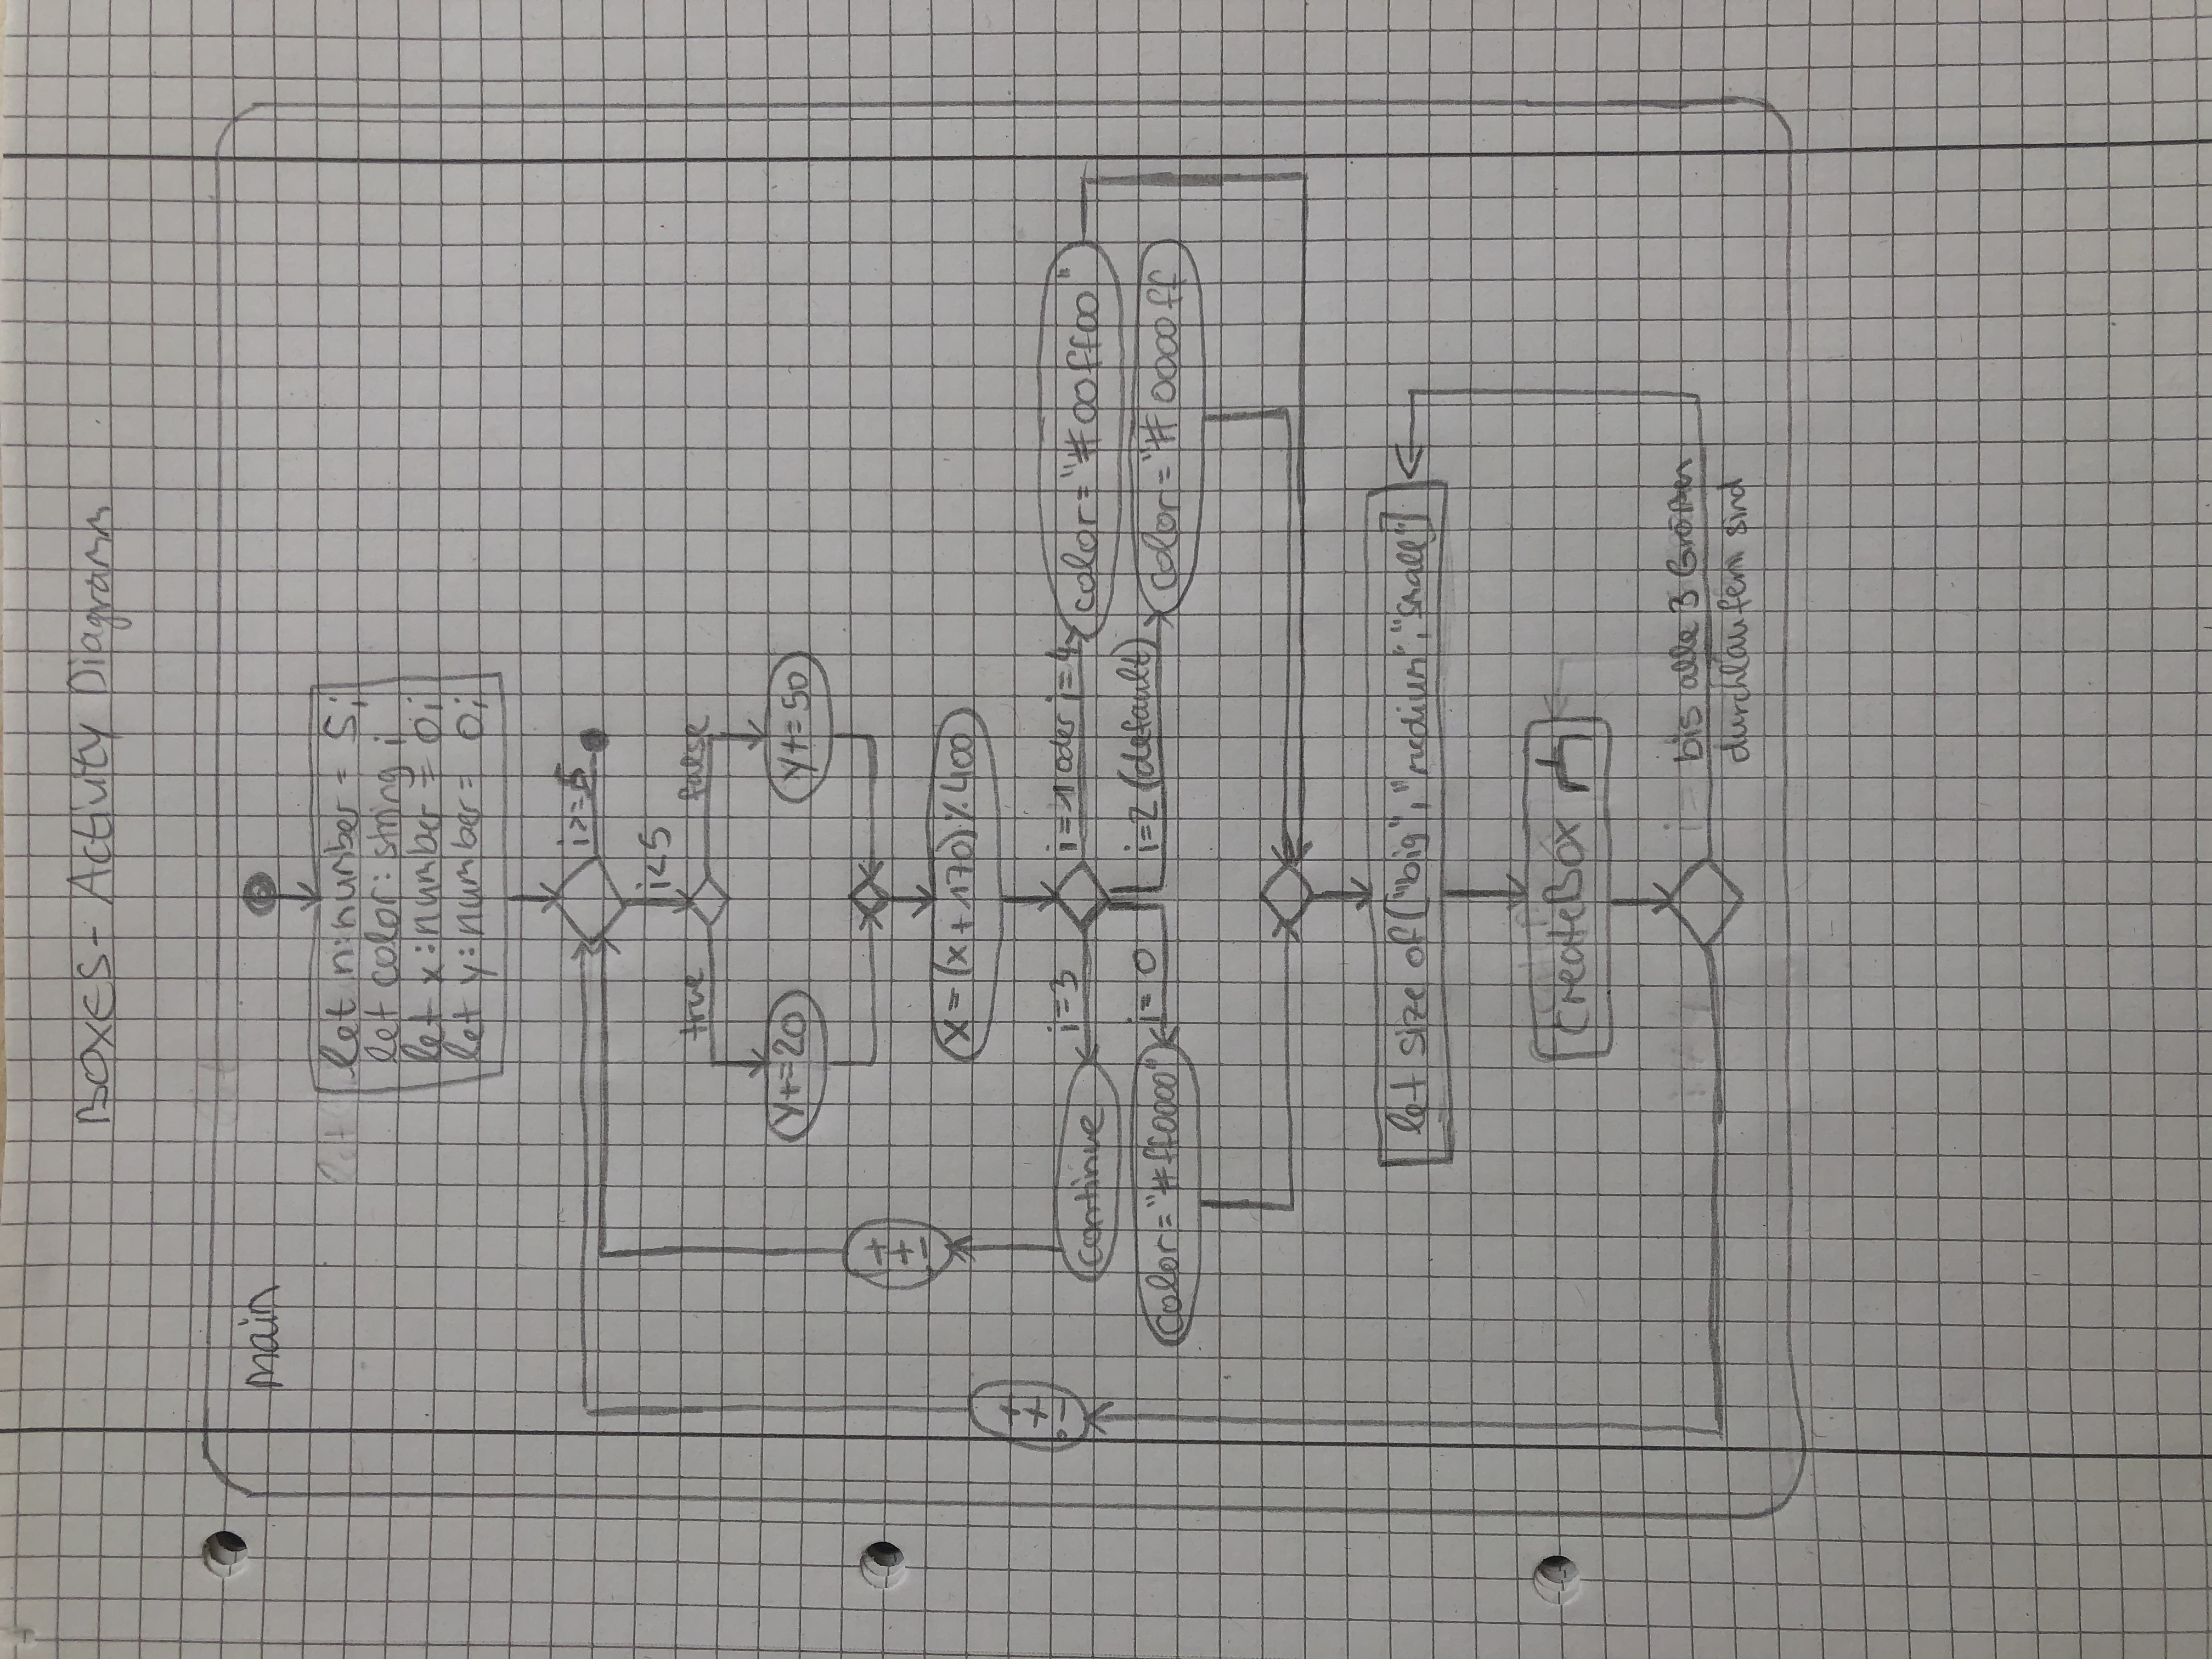 BOXES - Activity Diagramm
main
let n:number = 5;
let color: string;
let x:number = 0;
let y:number = 0;
i>=5
i<5
true
false
y+=20
y+=50
i++
x=(x+170)%400
i++
i=3
i=1 oder i=4
continue
color="#00ff00"
i=0
i=2 (default)
color="#ff0000"
color="#0000ff
let size of ["big", "medium", "small"]
createBox
bis alle 3 Größen
durchlaufen sind